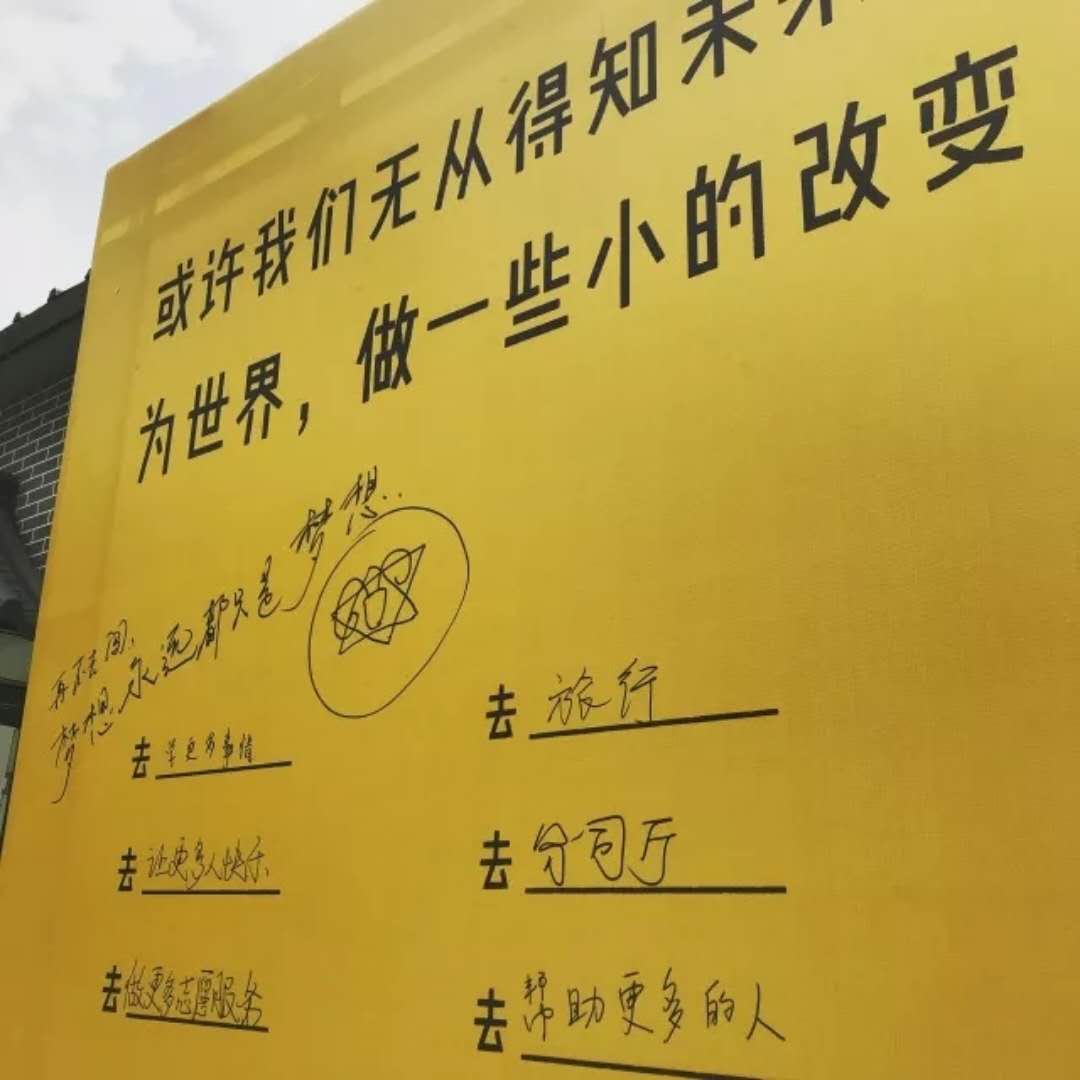 或许我们无从得知未来
为世界，做一些小的改变
再不去做，
梦想永远都只是梦想..
去 学更多事情
去 旅行
去 让更多人快乐
去 分司厅
去 做更多志愿服务
去 帮助更多的人